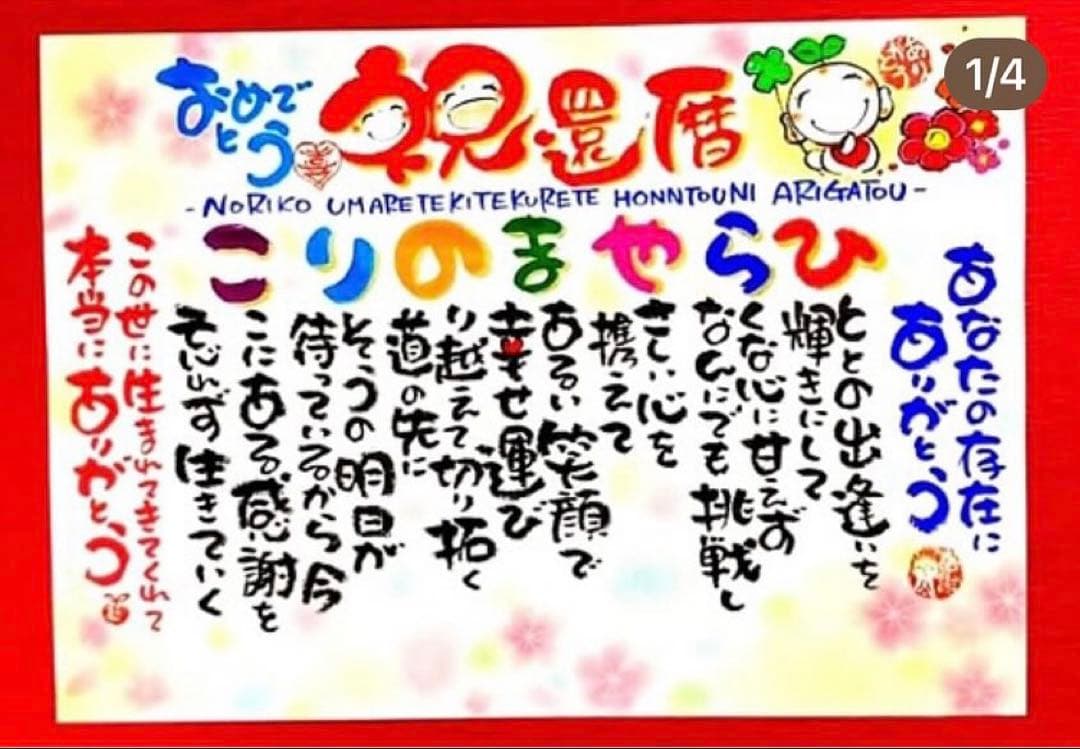 おめでとう
祝還暦
1/4
- NORIKO UMARETEKITEKURETE HONNTOUNI ARIGATOU -
あなたの存在に
ありがとう
ひらやまのりこ
ととの出逢いを
輝きにして
くな心に甘えず
なんにでも挑戦し
さしい心を
携えて
あるい笑顔で
幸せ運び
り越えて切り拓く
道の先に
そうの明日が
待っているから今
こにある感謝を
忘れず生きていく
この世に生まれてきてくれて
本当にありがとう